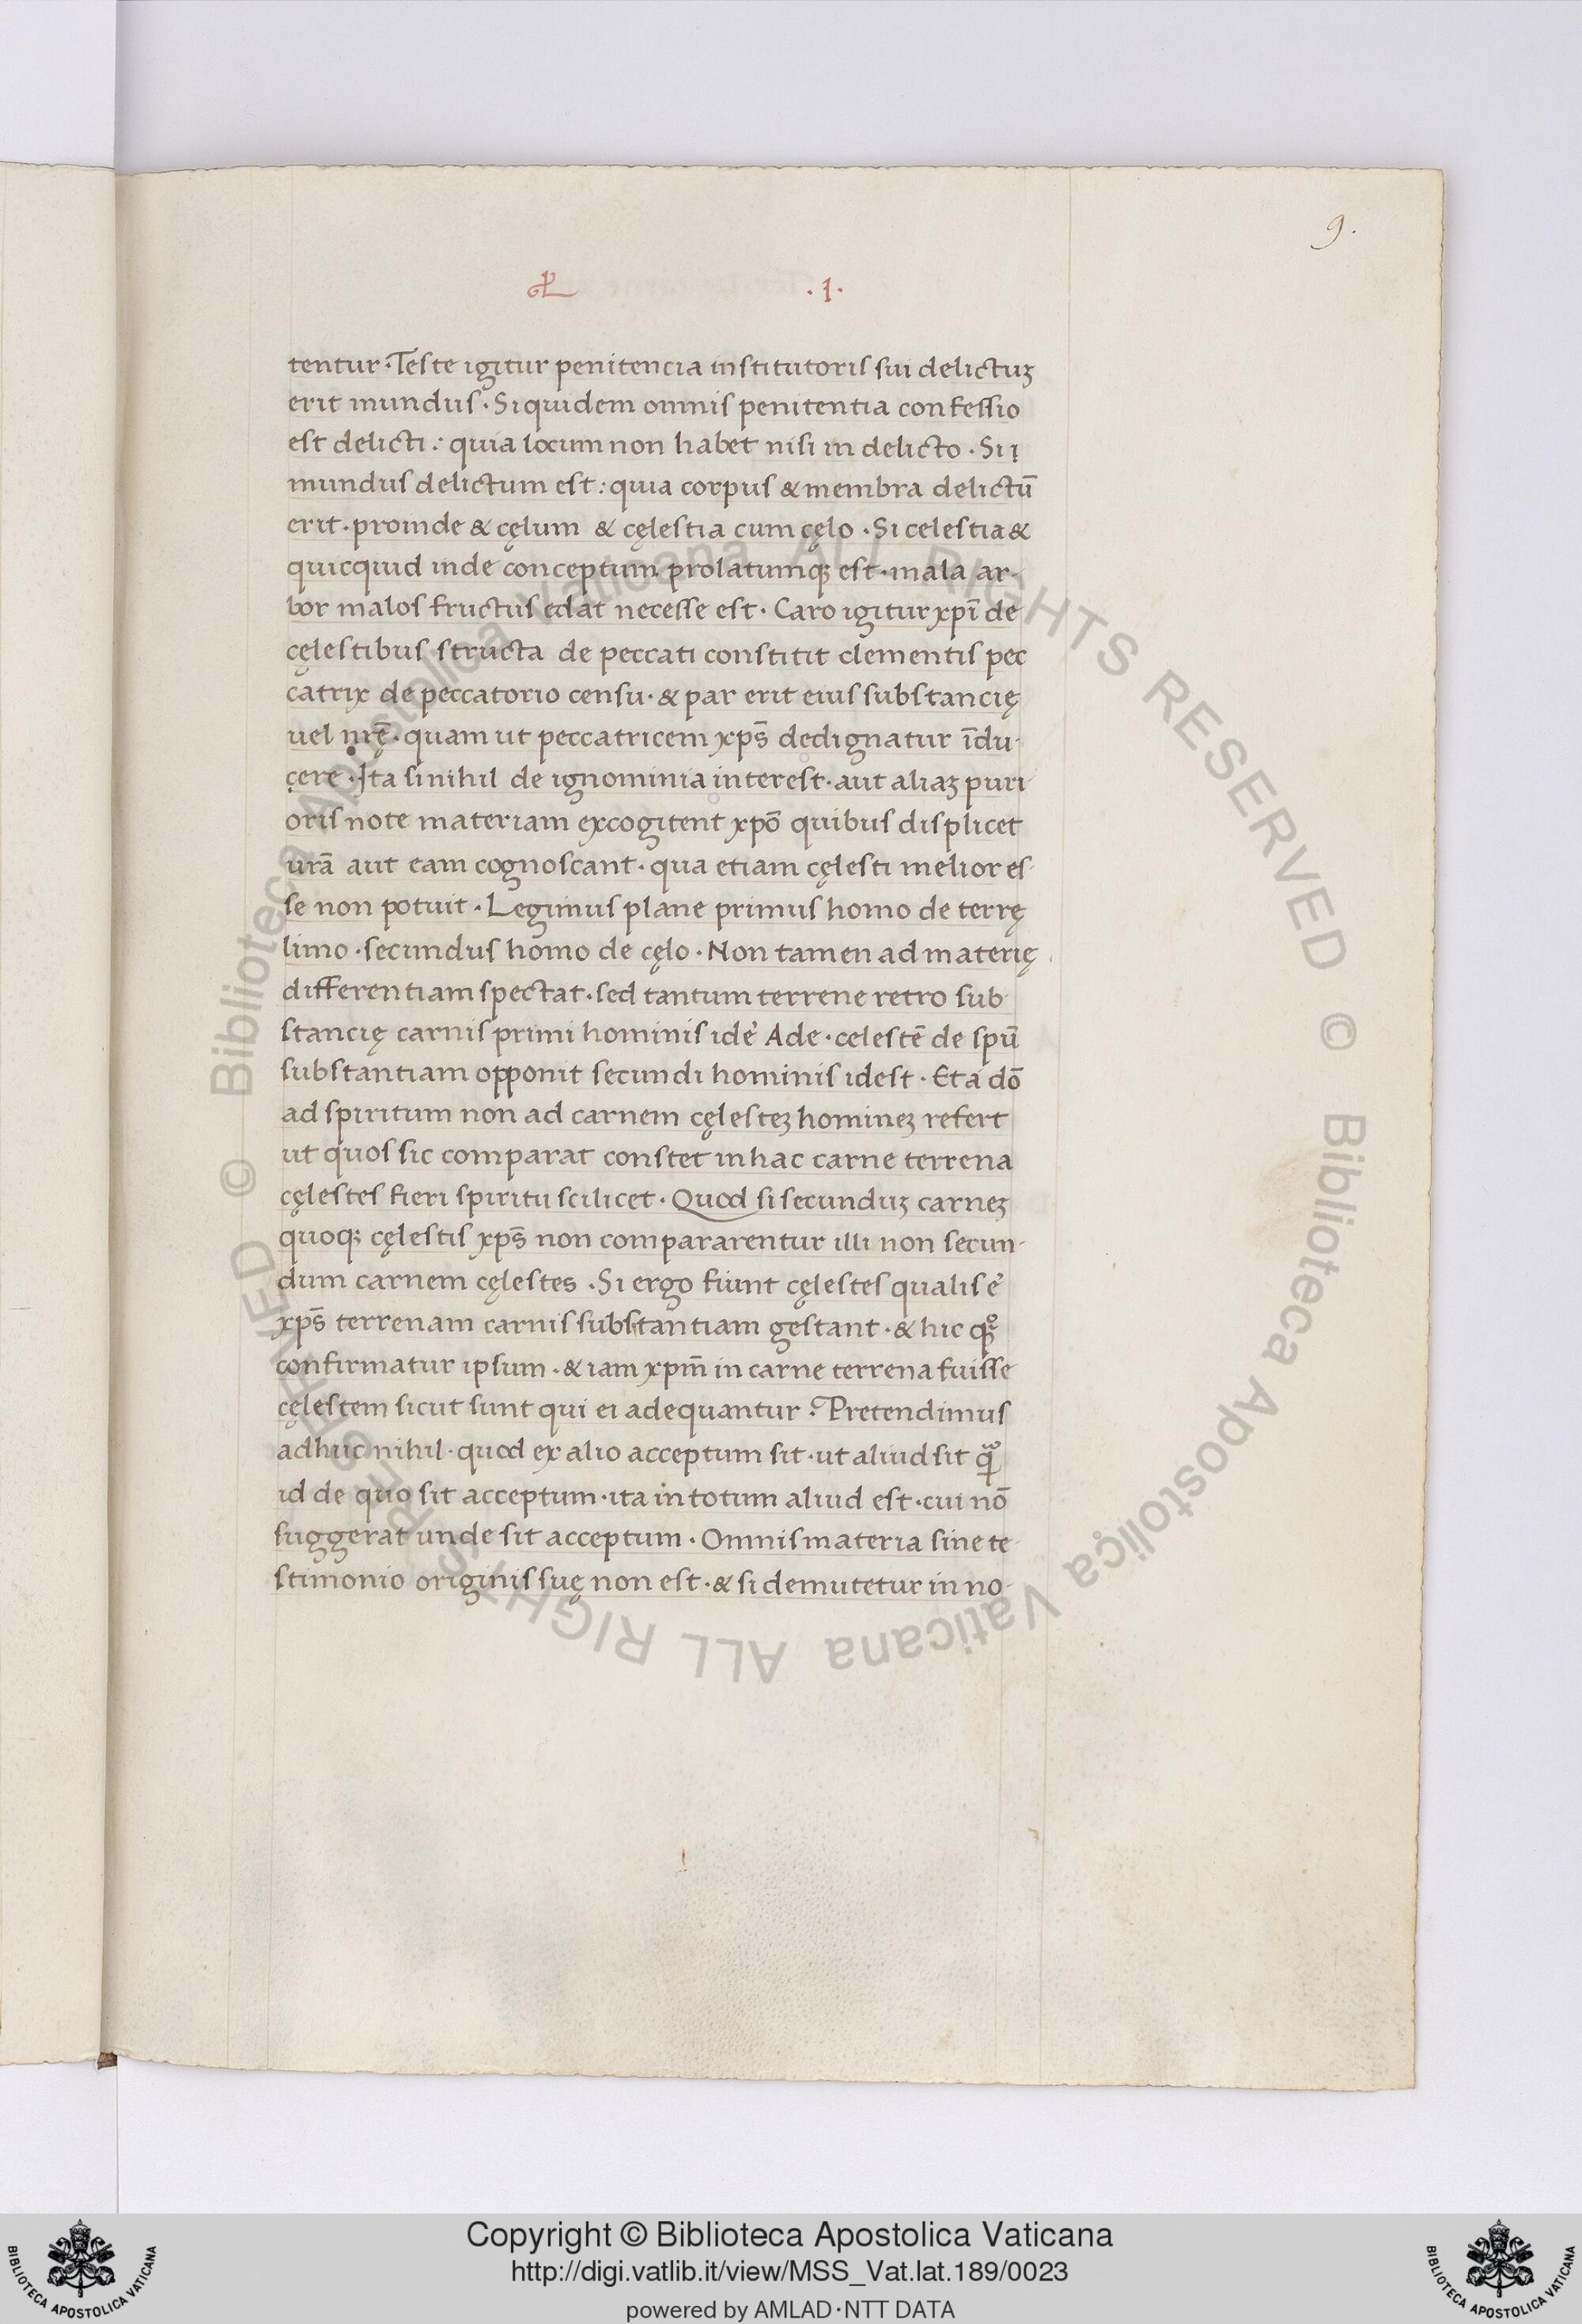 9.
.1.
tentur · Teste igitur penitencia institutoris sui delictuȝ
erit mundus · Siquidem omnis penitentia confessio
est delicti : quia locum non habet nisi in delicto · Si ı
mundus delictum est : quia corpus & membra delictū
erit · proinde & cęlum & cęlestia cum cęlo · Si celestia &
quicquid inde conceptum prolatumqȝ est · mala ar-
bor malos fructus edat necesse est · Caro igitur xpı̄ de
cęlestibus structa de peccati constitit elementis pec
catrix de peccatorio censu · & par erit eius substancię
uel nr̄ę · quam ut peccatricem xps̄ dedignatur īdu-
cere · Ita si nihil de ignominia interest · aut aliaȝ puri
oris note materiam excogitent xpō quibus displicet
ur̄a aut eam cognoscant · qua etiam cęlesti melior es-
se non potuit · Legimus plane primus homo de terrę
limo · secundus homo de cęlo · Non tamen ad materię
differentiam spectat · sed tantum terrene retro sub-
stancię carnis primi hominis idē Ade · celestē de spū
substantiam opponit secundi hominis idest · Et a dō
ad spiritum non ad carnem cęlesteȝ homineȝ refert
ut quos sic comparat constet in hac carne terrena
cęlestes fieri spiritu scilicet · Quod si secunduȝ carneȝ
quoqȝ cęlestis xps̄ non compararentur illi non secun-
dum carnem cęlestes · Si ergo fiunt cęlestes qualis ē
xps̄ terrenam carnis substantiam gestant · & hic qȝº
confirmatur ipsum · & iam xpm̄ in carne terrena fuisse
cęlestem sicut sunt qui ei adequantur · Pretendimus
adhuc nihil · quod ex alio acceptum sit · ut aliud sit
id de quo sit acceptum · ita in totum aliud est · cui nō
suggerat unde sit acceptum · Omnis materia sine te
stimonio originis suę non est · & si demutetur in no-
© Biblioteca Apostolica Vaticana ALL RIGHTS RESERVED © Biblioteca Apostolica Vaticana ALL RIGHTS RESERVED
Copyright © Biblioteca Apostolica Vaticana
http://digi.vatlib.it/view/MSS_Vat.lat.189/0023
powered by AMLAD·NTT DATA
BIBLIOTECA APOSTOLICA VATICANA
BIBLIOTECA APOSTOLICA VATICANA